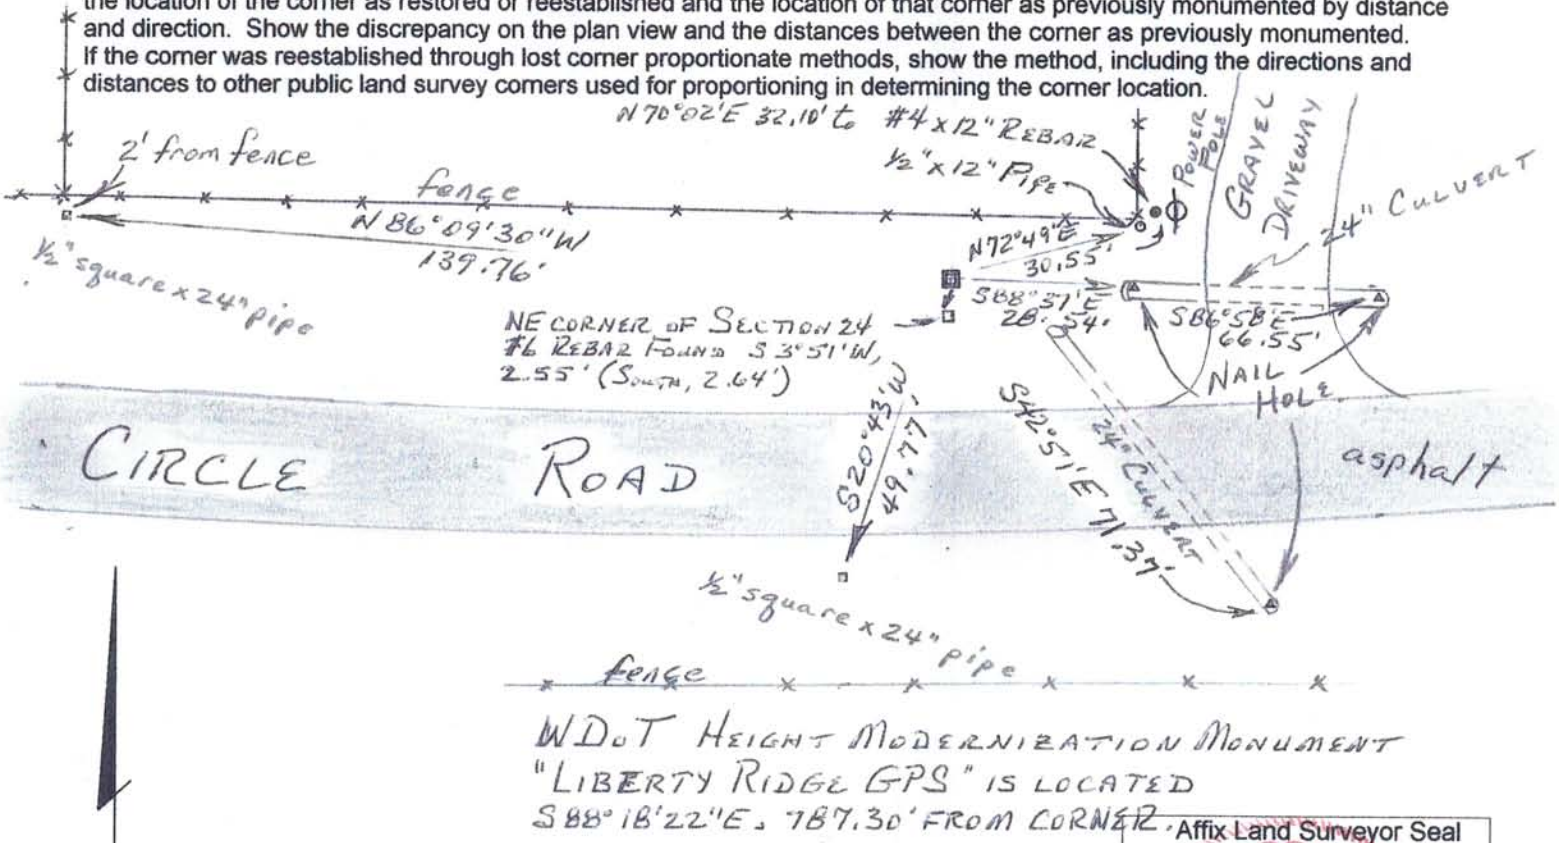 the location of the corner as restored or reestablished and the location of that corner as previously monumented by distance
and direction. Show the discrepancy on the plan view and the distances between the corner as previously monumented.
If the corner was reestablished through lost corner proportionate methods, show the method, including the directions and
distances to other public land survey corners used for proportioning in determining the corner location.
N 70°02'E 32.10' to #4 x 12" REBAR
1/2" x 12" PIPE
2' from fence
fence
N 86°09'30" W
139.76'
1/2" square x 24" pipe
POWER
POLE
GRAVEL
DRIVEWAY
24" CULVERT
N72°49'E
30.55'
S88°37'E
28.54'
S86°58'E
66.55'
NAIL
HOLE
NE CORNER OF SECTION 24
#6 REBAR FOUND S 3°51' W,
2.55' (SOUTH, 2.64')
S20°43'W,
49.77'
S42°51'E 71.37'
24" CULVERT
CIRCLE ROAD
asphalt
1/2" square x 24" pipe
fence
WDOT HEIGHT MODERNIZATION MONUMENT
"LIBERTY RIDGE GPS" IS LOCATED
S 88°18'22"E, 787.30' FROM CORNER.
Affix Land Surveyor Seal